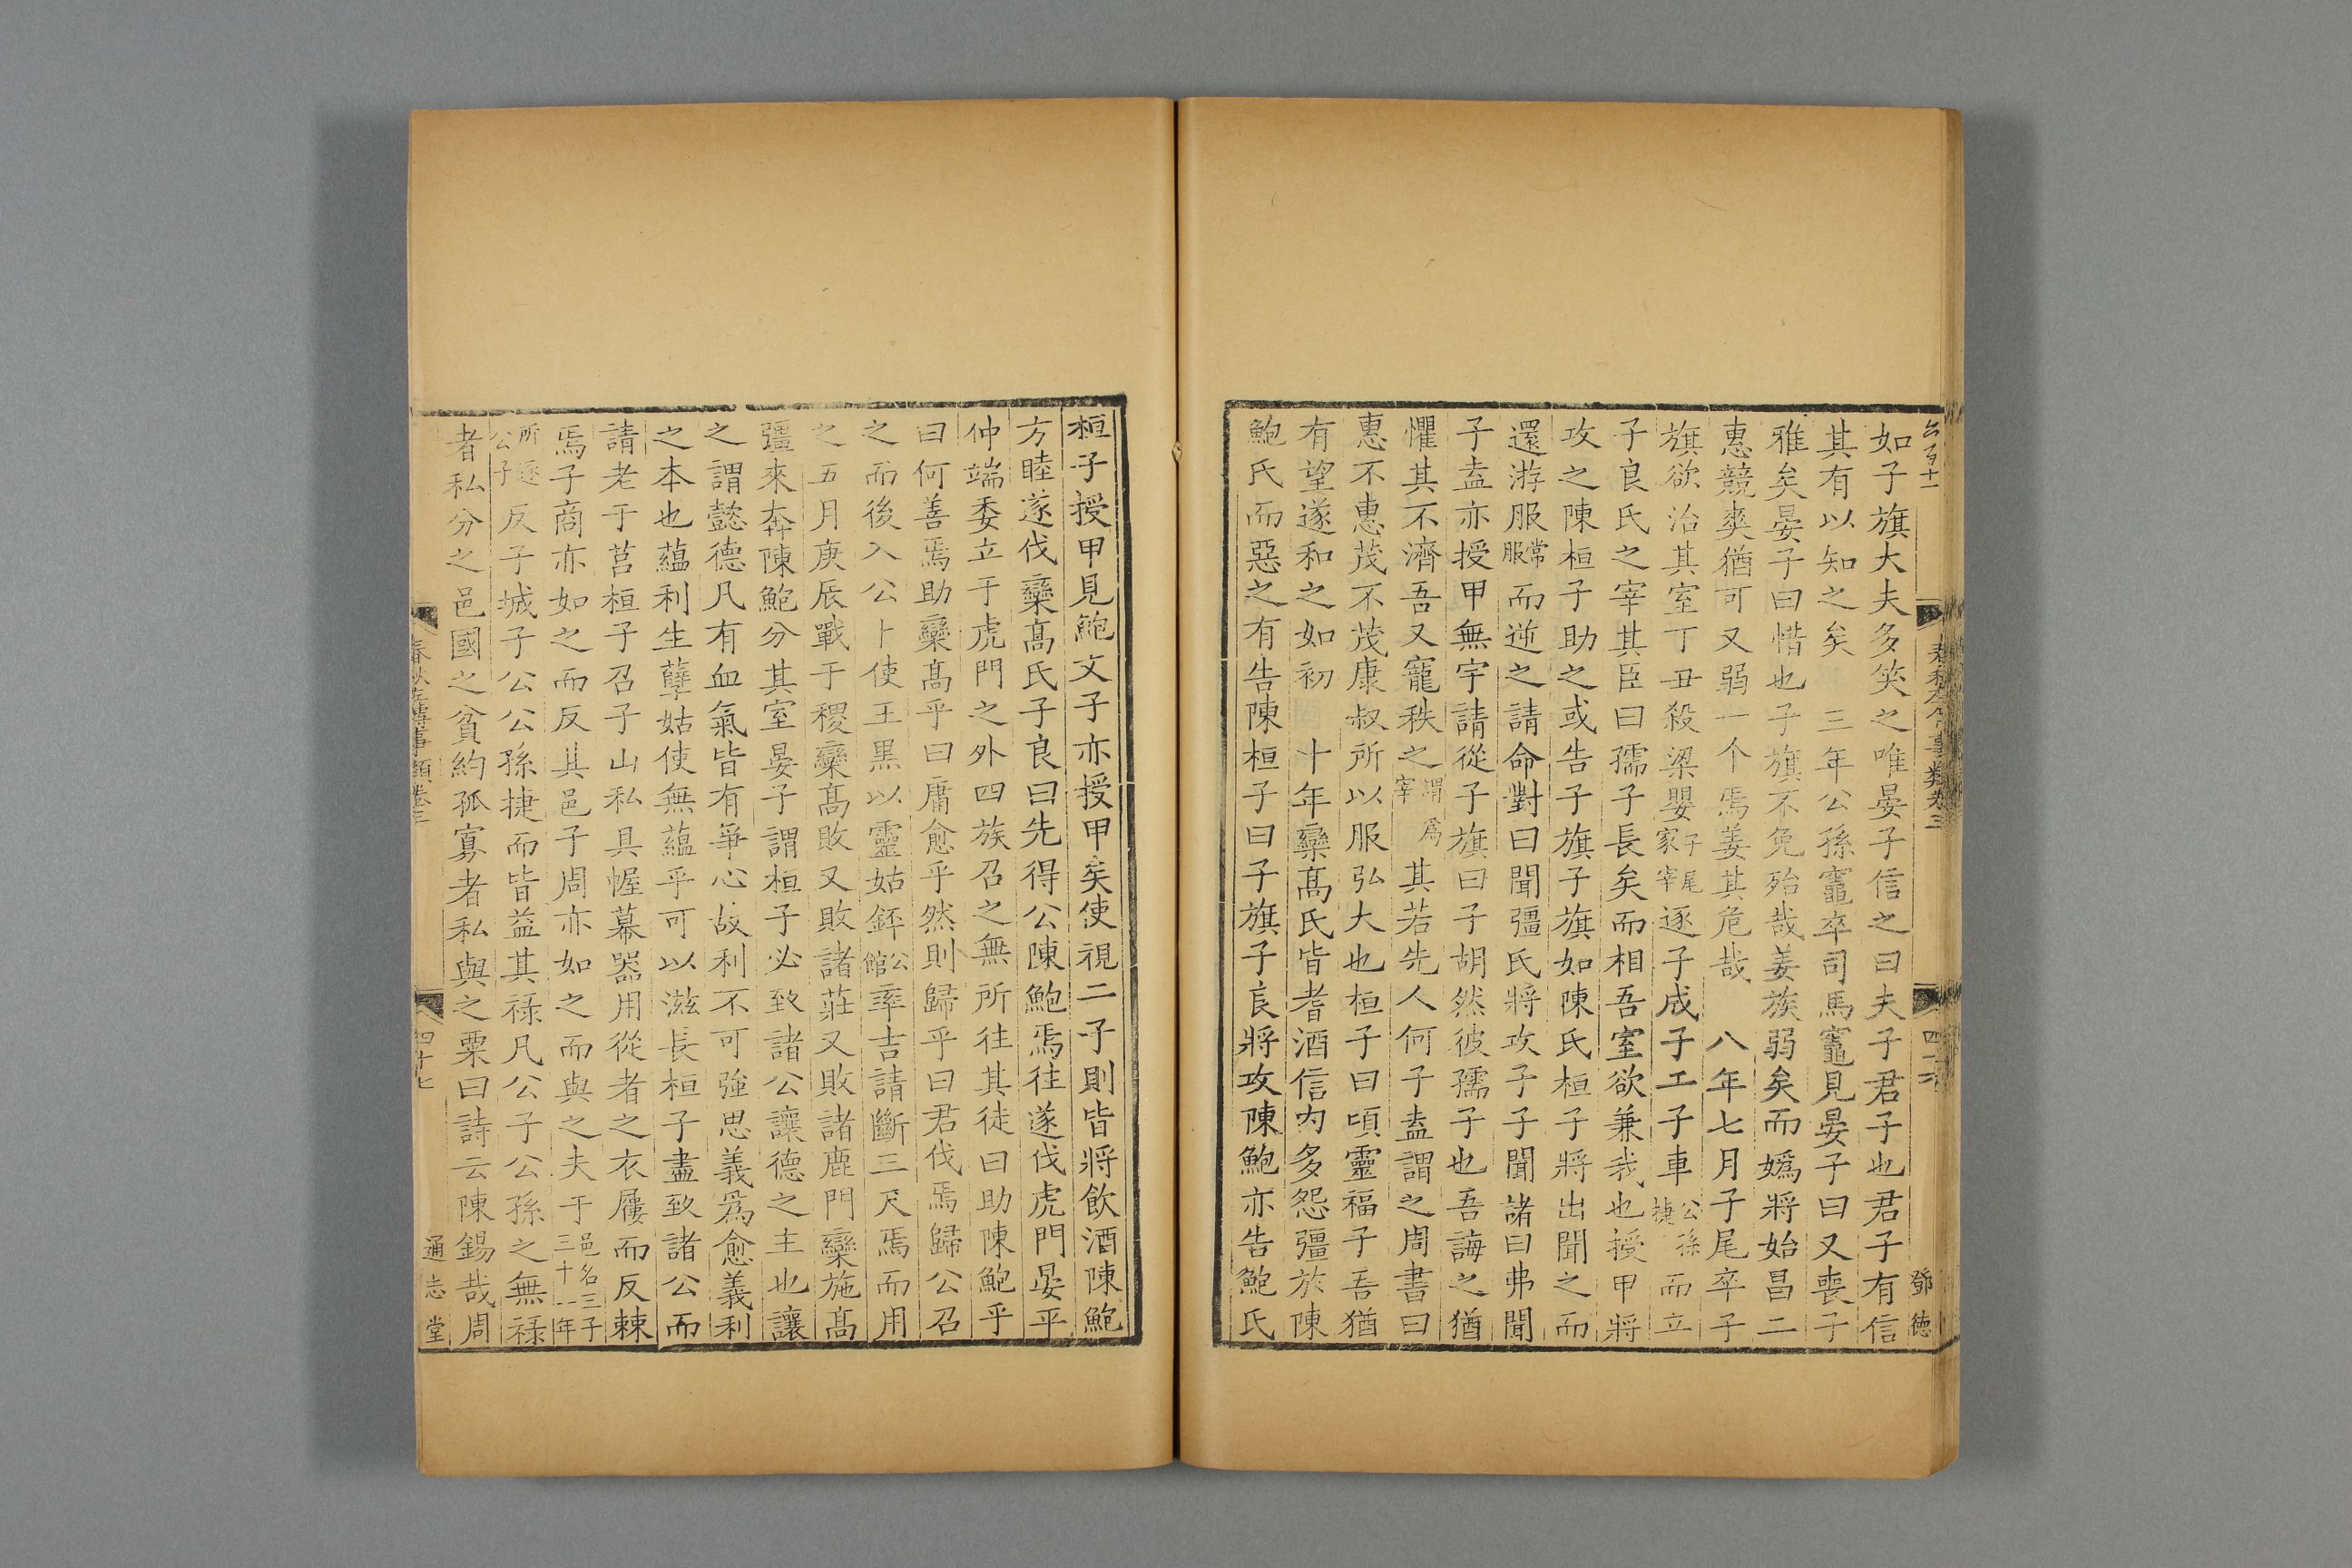 如子旗大夫多笑之唯晏子信之曰夫子君子也君子有信
其有以知之矣　三年公孫竈卒司馬竈見晏子曰又喪子
雅矣晏子曰惜也子旗不免殆哉姜族弱矣而嬀將始昌二
惠競爽猶可又弱一个焉姜其危哉　八年七月子尾卒子
旗欲治其室丁丑殺梁嬰子尾家宰逐子成子工子車公孫捷而立
子良氏之宰其臣曰孺子長矣而相吾室欲兼我也授甲將
攻之陳桓子助之或告子旗子旗如陳氏桓子將出聞之而
還游服常服而逆之請命對曰聞彊氏將攻子子聞諸曰弗聞
子盍亦授甲無宇請從子旗曰子胡然彼孺子也吾誨之猶
懼其不濟吾又寵秩之謂爲宰其若先人何子盍謂之周書曰
惠不惠茂不茂康叔所以服弘大也桓子曰頃靈福子吾猶
有望遂和之如初　十年欒高氏皆耆酒信内多怨彊於陳
鮑氏而惡之有告陳桓子曰子旗子良將攻陳鮑亦告鮑氏
鄧德
桓子授甲見鮑文子亦授甲矣使視二子則皆將飲酒陳鮑
方睦遂伐欒高氏子良曰先得公陳鮑焉往遂伐虎門晏平
仲端委立于虎門之外四族召之無所往其徒曰助陳鮑乎
曰何善焉助欒高乎曰庸愈乎然則歸乎曰君伐焉歸公召
之而後入公卜使王黒以靈姑銔公館率吉請斷三尺焉而用
之五月庚辰戰于稷欒高敗又敗諸莊又敗諸鹿門欒施高
彊來奔陳鮑分其室晏子謂桓子必致諸公讓德之主也讓
之謂懿德凡有血氣皆有爭心故利不可強思義爲愈義利
之本也蘊利生孽姑使無蘊乎可以滋長桓子盡致諸公而
請老于莒桓子召子山私具幄幕器用從者之衣屨而反棘
焉子商亦如之而反其邑子周亦如之而與之夫于邑名三子三十一年
所逐公子反子城子公公孫捷而皆益其祿凡公子公孫之無祿
者私分之邑國之貧約孤寡者私與之粟曰詩云陳錫哉周
春秋左傳事類卷三
四十七
通志堂